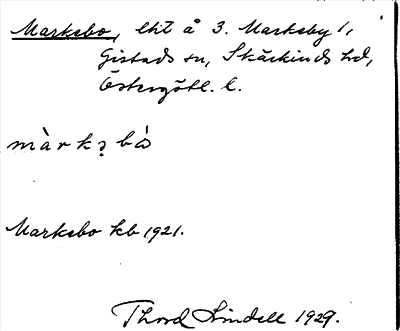 Markebo, lht å 3. Markeby 1,
Gistads sn, Skärkinds hd,
Östergötl. l.
màrkə bò
Markebo kb 1921.
Thord Lindell 1929.